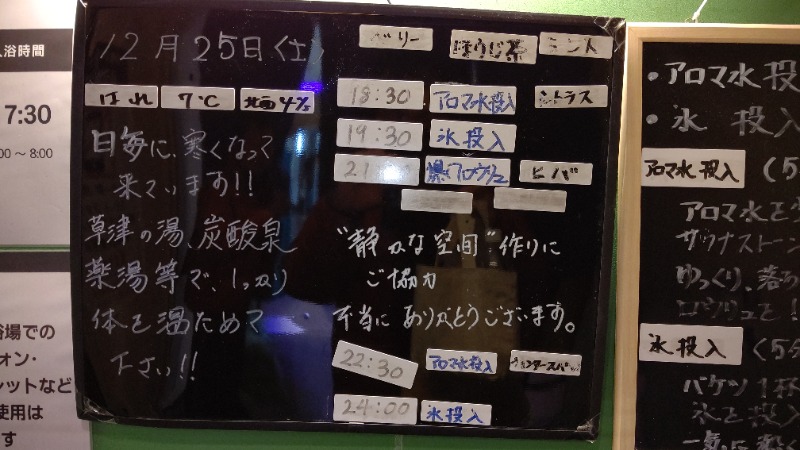 入浴時間
7:30
00～8:00
12月25日(土)
はれ 7℃ 北西4%
日毎に、寒くなって
来ています!!
草津の湯、炭酸泉
薬湯等で、しっかり
体を温ためて
下さい!!
ベリー ほうじ茶 ミント
18:30 アロマ水投入 シトラス
19:30 氷投入
21 爆アロウリュ ヒバ
"静かな空間"作りに
ご協力
本当にありがとうございます。
22:30 アロマ水投入
24:00 氷投入
・アロマ水投
・氷 投入
アロマ水投入 (5分
アロマ水を
サウナストーン
ゆっくり、落
ロウリュを!
氷投入 (5分
バケツ1杯
氷を投入
一気に
浴場での
ォン・
レットなど
使用は
す